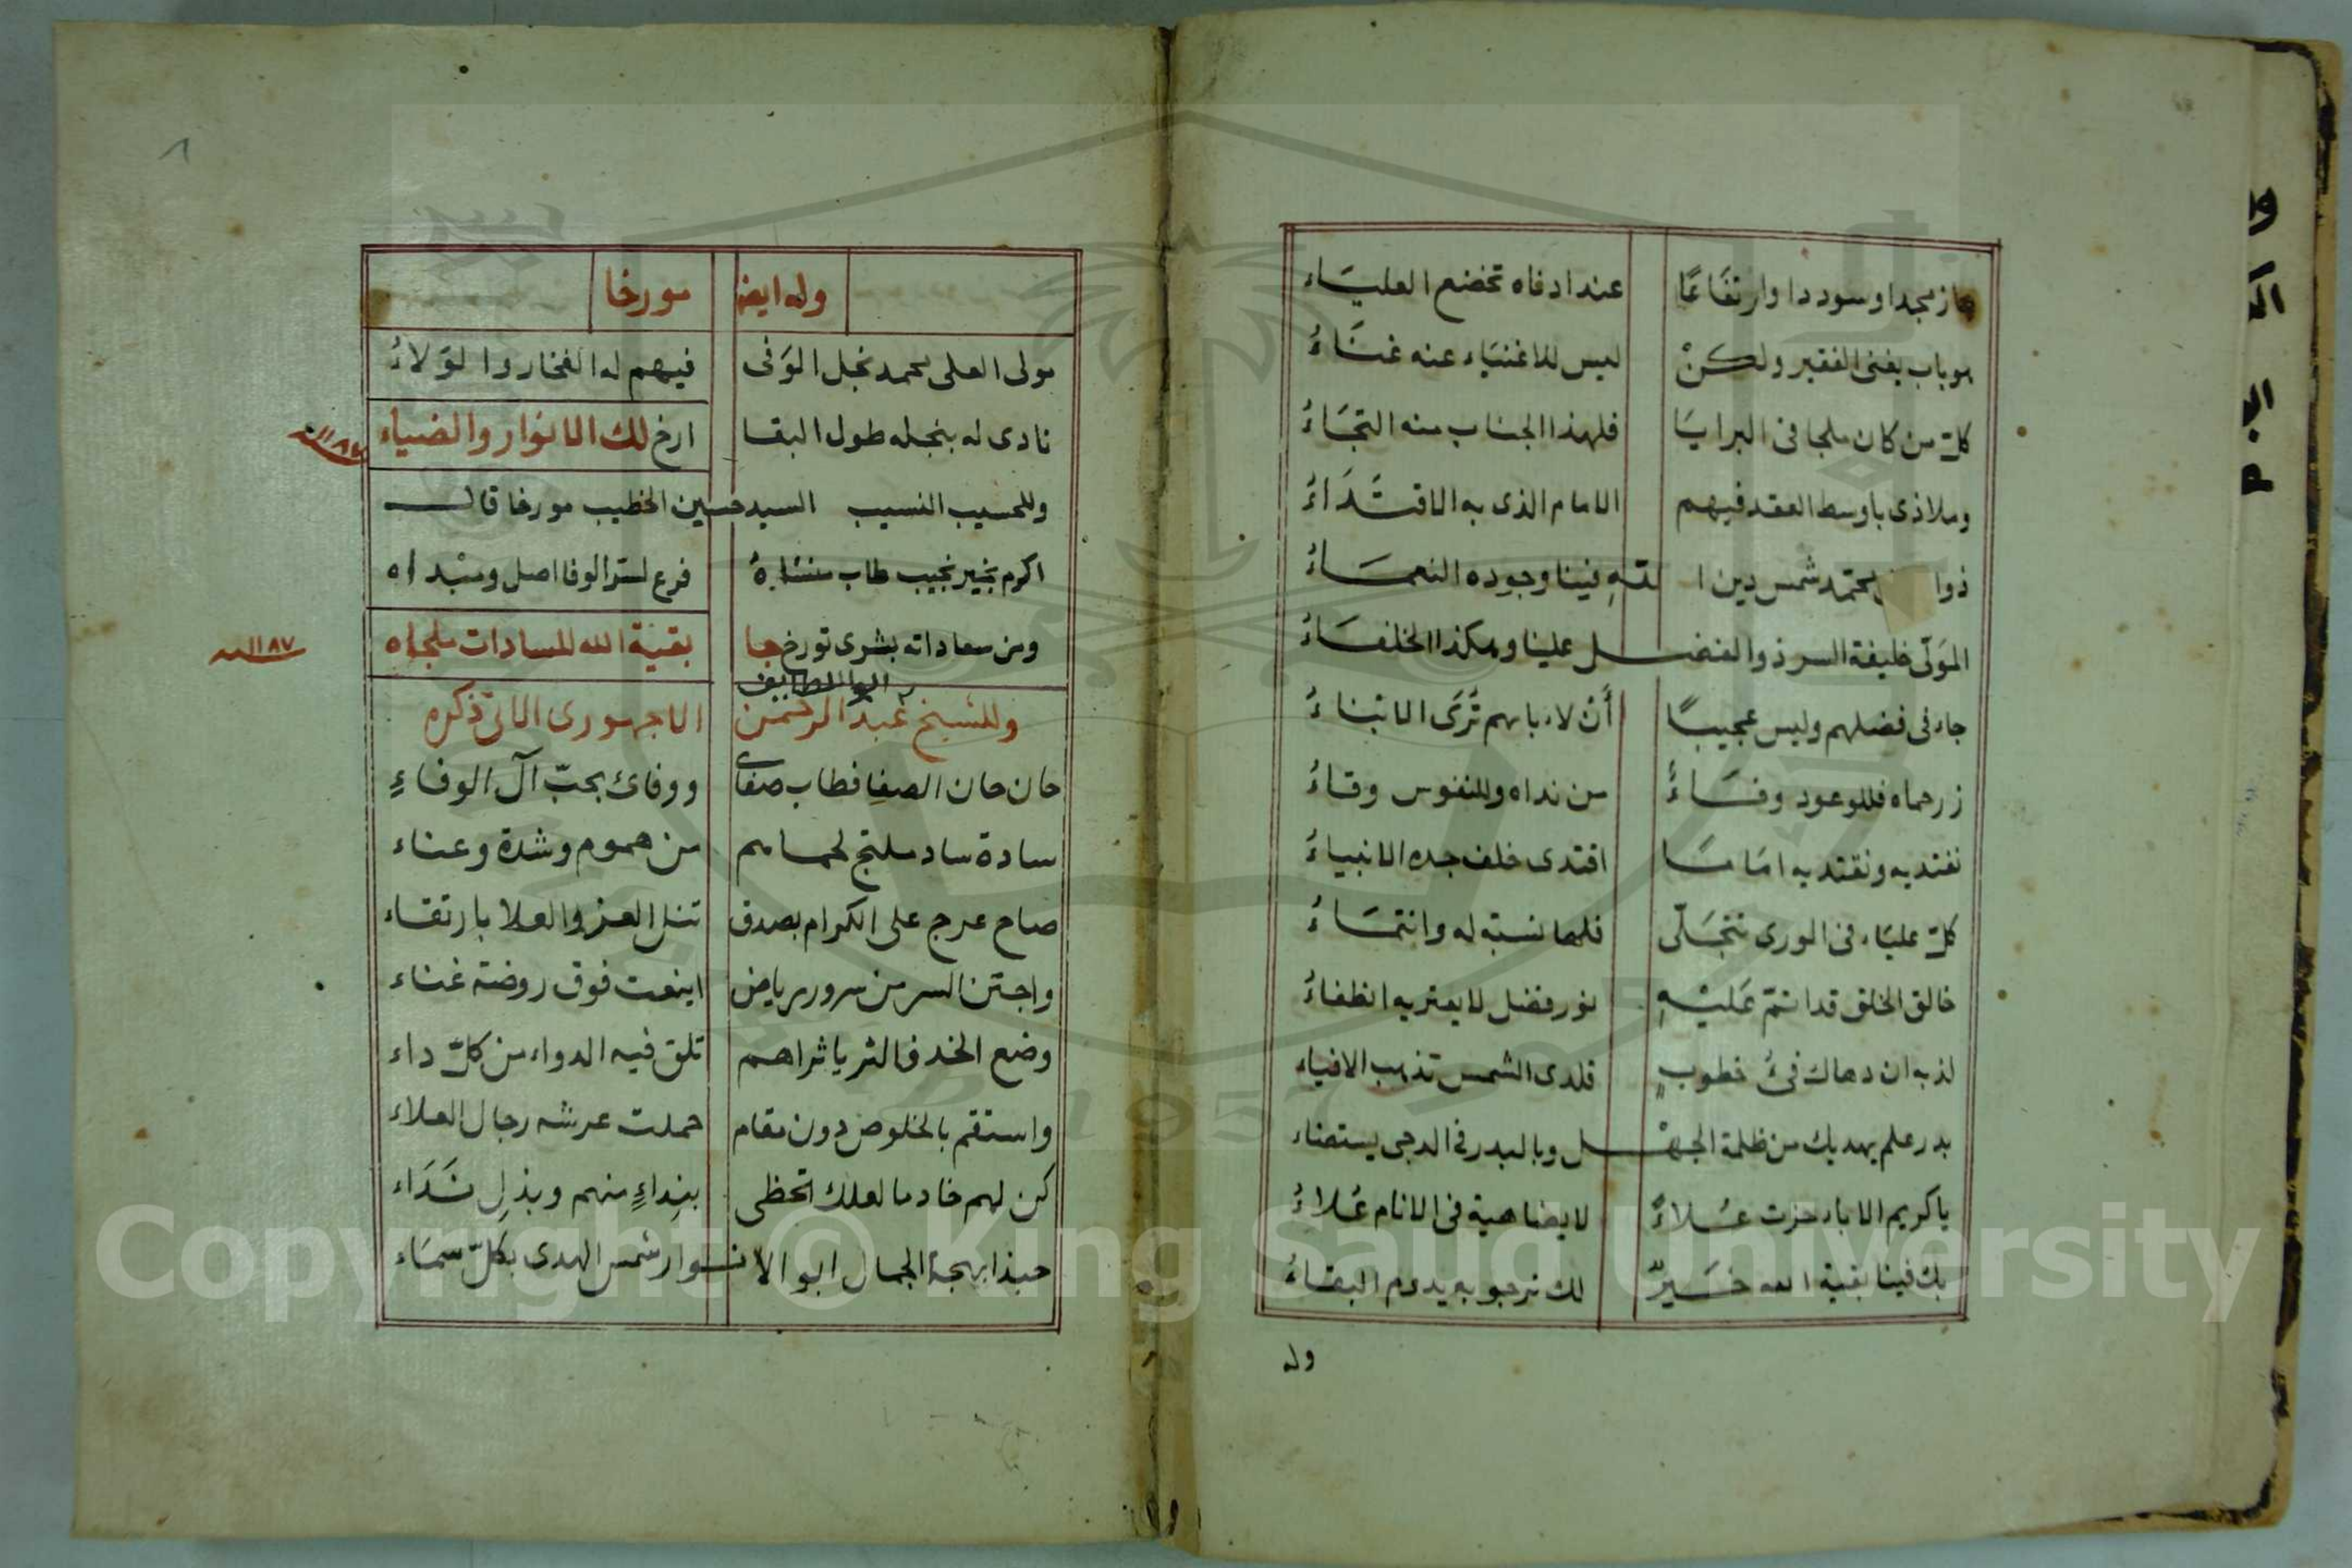 حاز مجدا وسوددا وارتقاعًا عند ادناه تخضع العليَاء
هو باب يغنى الفقير ولكنْ ليس للاغنيَاء عنه غنَاءُ
كلّ من كان ملجا فى البرايَا فلهذا الجناب منه التجَاءُ
وملاذى باوسط العقد فيهم الامام الذى به الاقتدَاءُ
ذوا محمّد شمس دين ا للّهِ فينا وجوده النعمَاءُ
المَولّى خليفة السر ذو الفضـل علينا وهكذا الخلفَاءُ
جاء فى فضلهم وليس عجيبًا أنْ لاءبابهم تُرَى الابْنَاءُ
زر حماه فللوعود وفَاءُ من نداه وللنفوس وقاءُ
نفتديه ونقتديه امَامًا اقتدى خلف جده الانبياءُ
كلّ عليَاء فى الورى تتجَلّى فلها نسبة له وانتمَاءُ
خالق الخلق قد اتمّ عَليْهِ نور فضل لا يعتريه انطفاءُ
لذ به ان دهاك فىُ خطوبٍ فلدى الشمس تذهب الافياء
بدر علم يهديك من ظلمة الجهْـل وبالبدر فى الدجى يستضاء
يا كريم الاباء حزت عُلاءً لا يضاهية فى الانام عُلاءُ
بك فينا بقية الله خَيرٌ لك نرجو به يدوم البقاءُ
وله
وله ايضا مورخا
مولى العلى محمد نجل الوَفى فيهم له الفخار والوَلاءُ
نادى له بنجله طول البقا ارخ لك الانوار والضياء
١١٨٧سنه
وللحسيب النسيب السيد حسين الخطيب مورخا قال
اكرم بخير نجيب طاب منشاهُ فرع لستر الوفا اصل ومبْداه
ومن سعاداته بشرى تورخ جا بقية الله للسادات ملجاه
١١٨٧سنه
وللشيخ عبد الرحمن الاجهورى الاتى ذكره
حان حان الصفا فطاب صفاى ووفائ بحبّ آل الوفاءِ
سادة ساد ملتج لحماهم من هموم وشدة وعناء
صاح عرج على الكرام بصدق تنل العز والعلا بارتقاء
واجتن السر من سرور رياض اينعت فوق روضة غناء
وضع الخد فالثريا ثراهم تلق فيه الدواء من كلّ داء
واستقم بالخلوص دون مقام حملت عرشه رجال العلاء
كن لهم خادما لعلك تحظى بنِداءٍ منهم وبذلِ نَدَاء
حبذا بهجة الجمال ابو الانـوار شمس الهدى بكلّ سمَاء
Copyright © King Saud University
1957